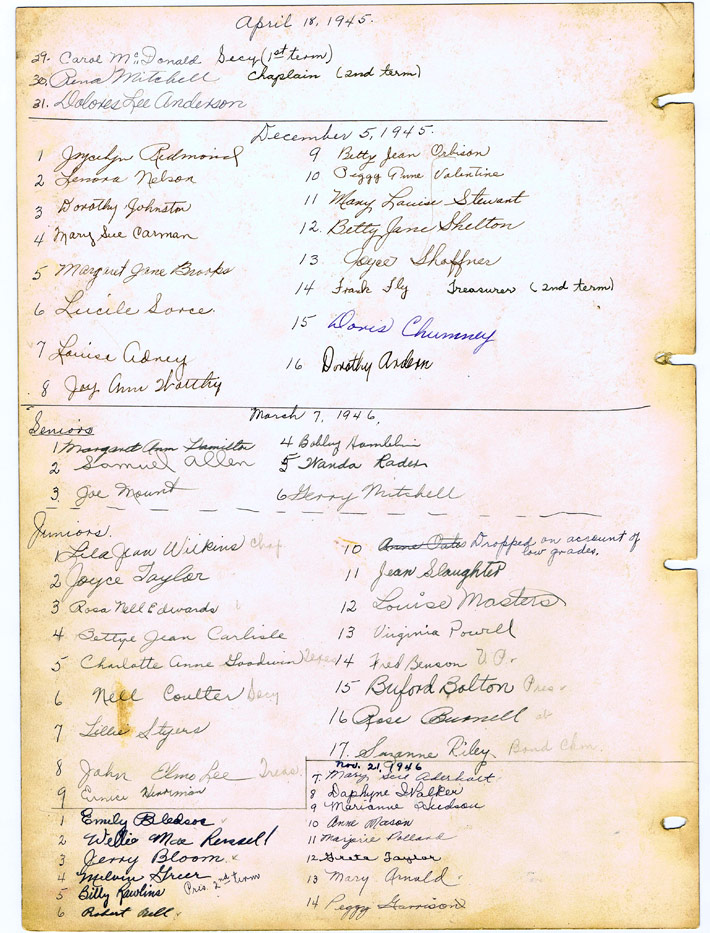 April 18, 1945.
29. Carol McDonald Secy (1st term)
30. Rena Mitchell Chaplain (2nd term)
31. Dolores Lee Anderson
December 5, 1945.
1 Joycelyn Redmond
2 Lenora Nelson
3 Dorothy Johnston
4 Mary Sue Carman
5 Margaret Jane Brooks
6 Lucile Sorce
7 Louise Adney
8 Joy Ann Worthy
9 Betty Jean Orbison
10 Peggy Anne Valentine
11 Mary Louise Stewart
12. Betty Jane Shelton
13 Joyce Shoffner
14 Frank Fly Treasurer (2nd term)
15 Doris Chumney
16 Dorothy Ardern
March 7, 1946,
Seniors
1 Margaret Ann Hamilton
2 Samuel Allen
3. Joe Mount
4 Bobby Hamblin
5 Wanda Rader
6 Gerry Mitchell
Juniors.
1 Lila Jean Wilkins Chap
2 Joyce Taylor
3 Rosa Nell Edwards
4 Bettye Jean Carlisle
5 Charlotte Anne Goodwin
6 Nell Coulter Secy
7 Lillie Styers
8 John Elmo Lee Treas.
9 Ernice
10 Anne Oates Dropped on account of
low grades.
11 Jean Slaughter
12 Louise Masters
13 Virginia Powell
14 Fred Benson V. P.
15 Buford Bolton Pres.
16 Rose Burnell
17. Suzanne Riley Band Chm.
1 Emily Bledsoe
2 Willie Mae Russell
3 Jerry Bloom
4 Melvin Greer
5 Billy Rawlins Pres. 2nd term
6 Robert Bell
Nov. 21, 1946
7. Mary Sue Aderhart
8 Daphyne Walker
9 Marianne Hudson
10 Anne Mason
11 Marjorie Pollard
12 Greta Taylor
13 Mary Arnold
14 Peggy Garrison